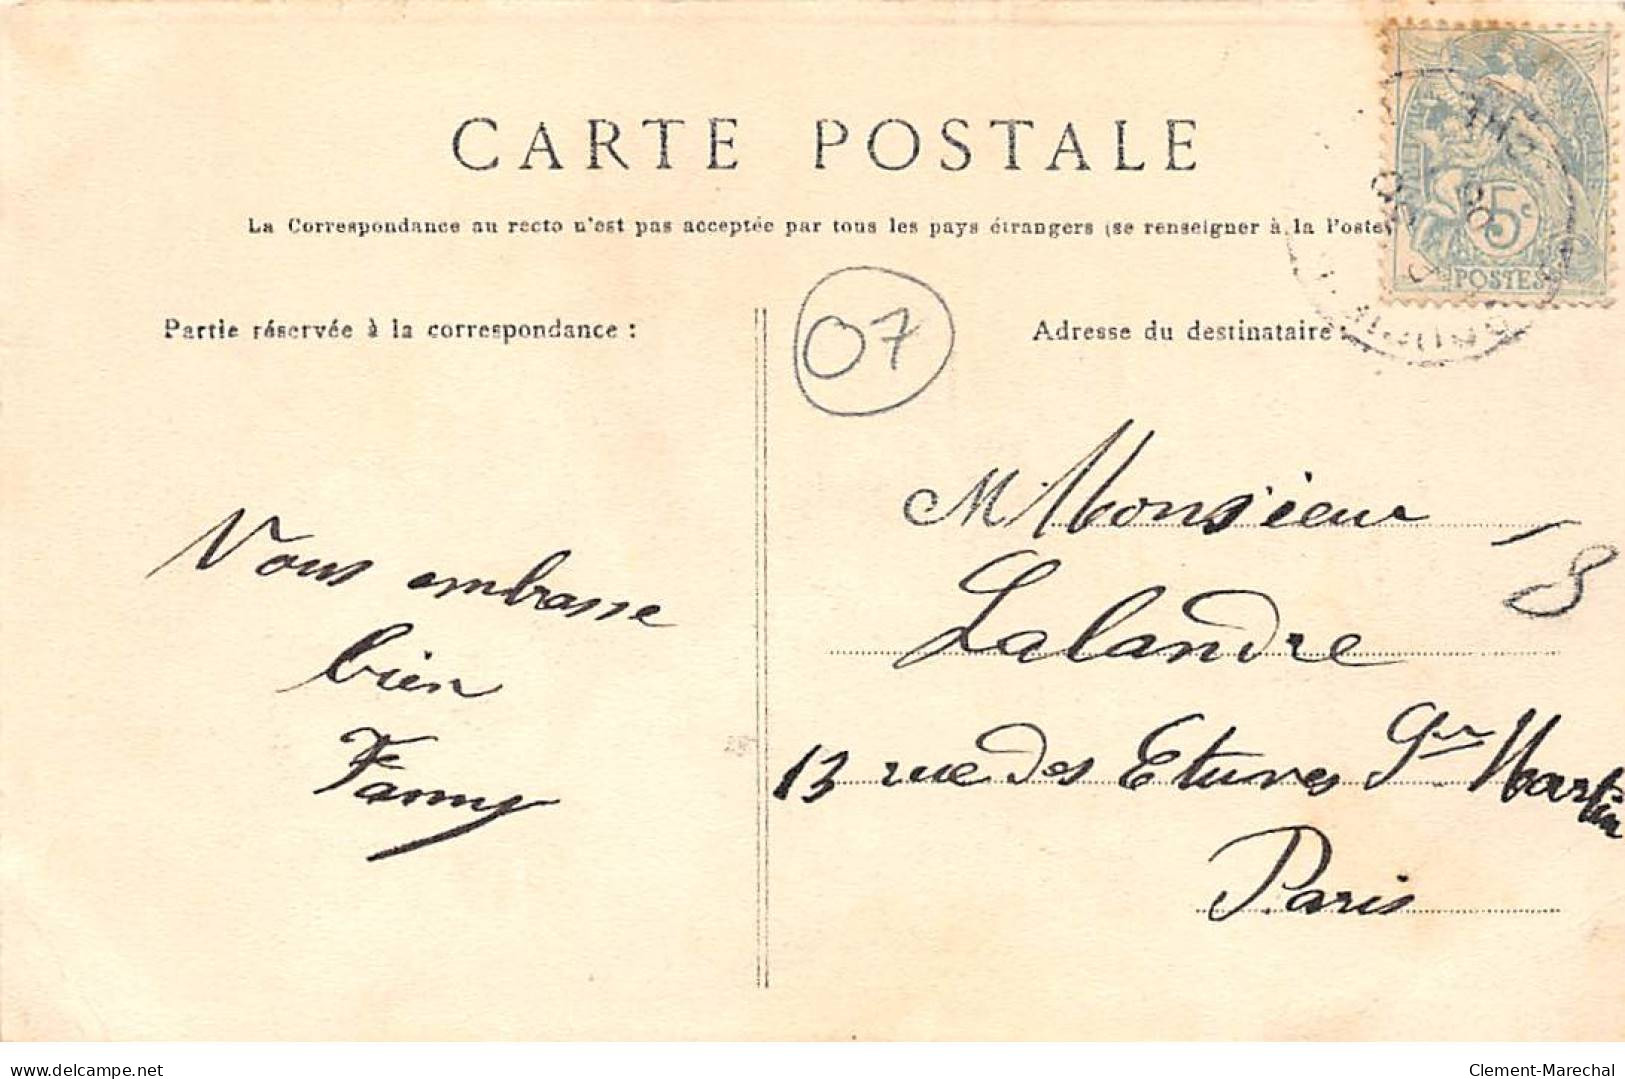 CARTE POSTALE
La Correspondance au recto n'est pas acceptée par tous les pays étrangers (se renseigner à la Poste)
Partie réservée à la correspondance :
Adresse du destinataire :
07
5c
POSTES
Vous embrasse
bien
Fanny
M Monsieur
Lalandre
13 rue des Etuves St Martin
Paris
8
delcampe.net
Clement-Marechal